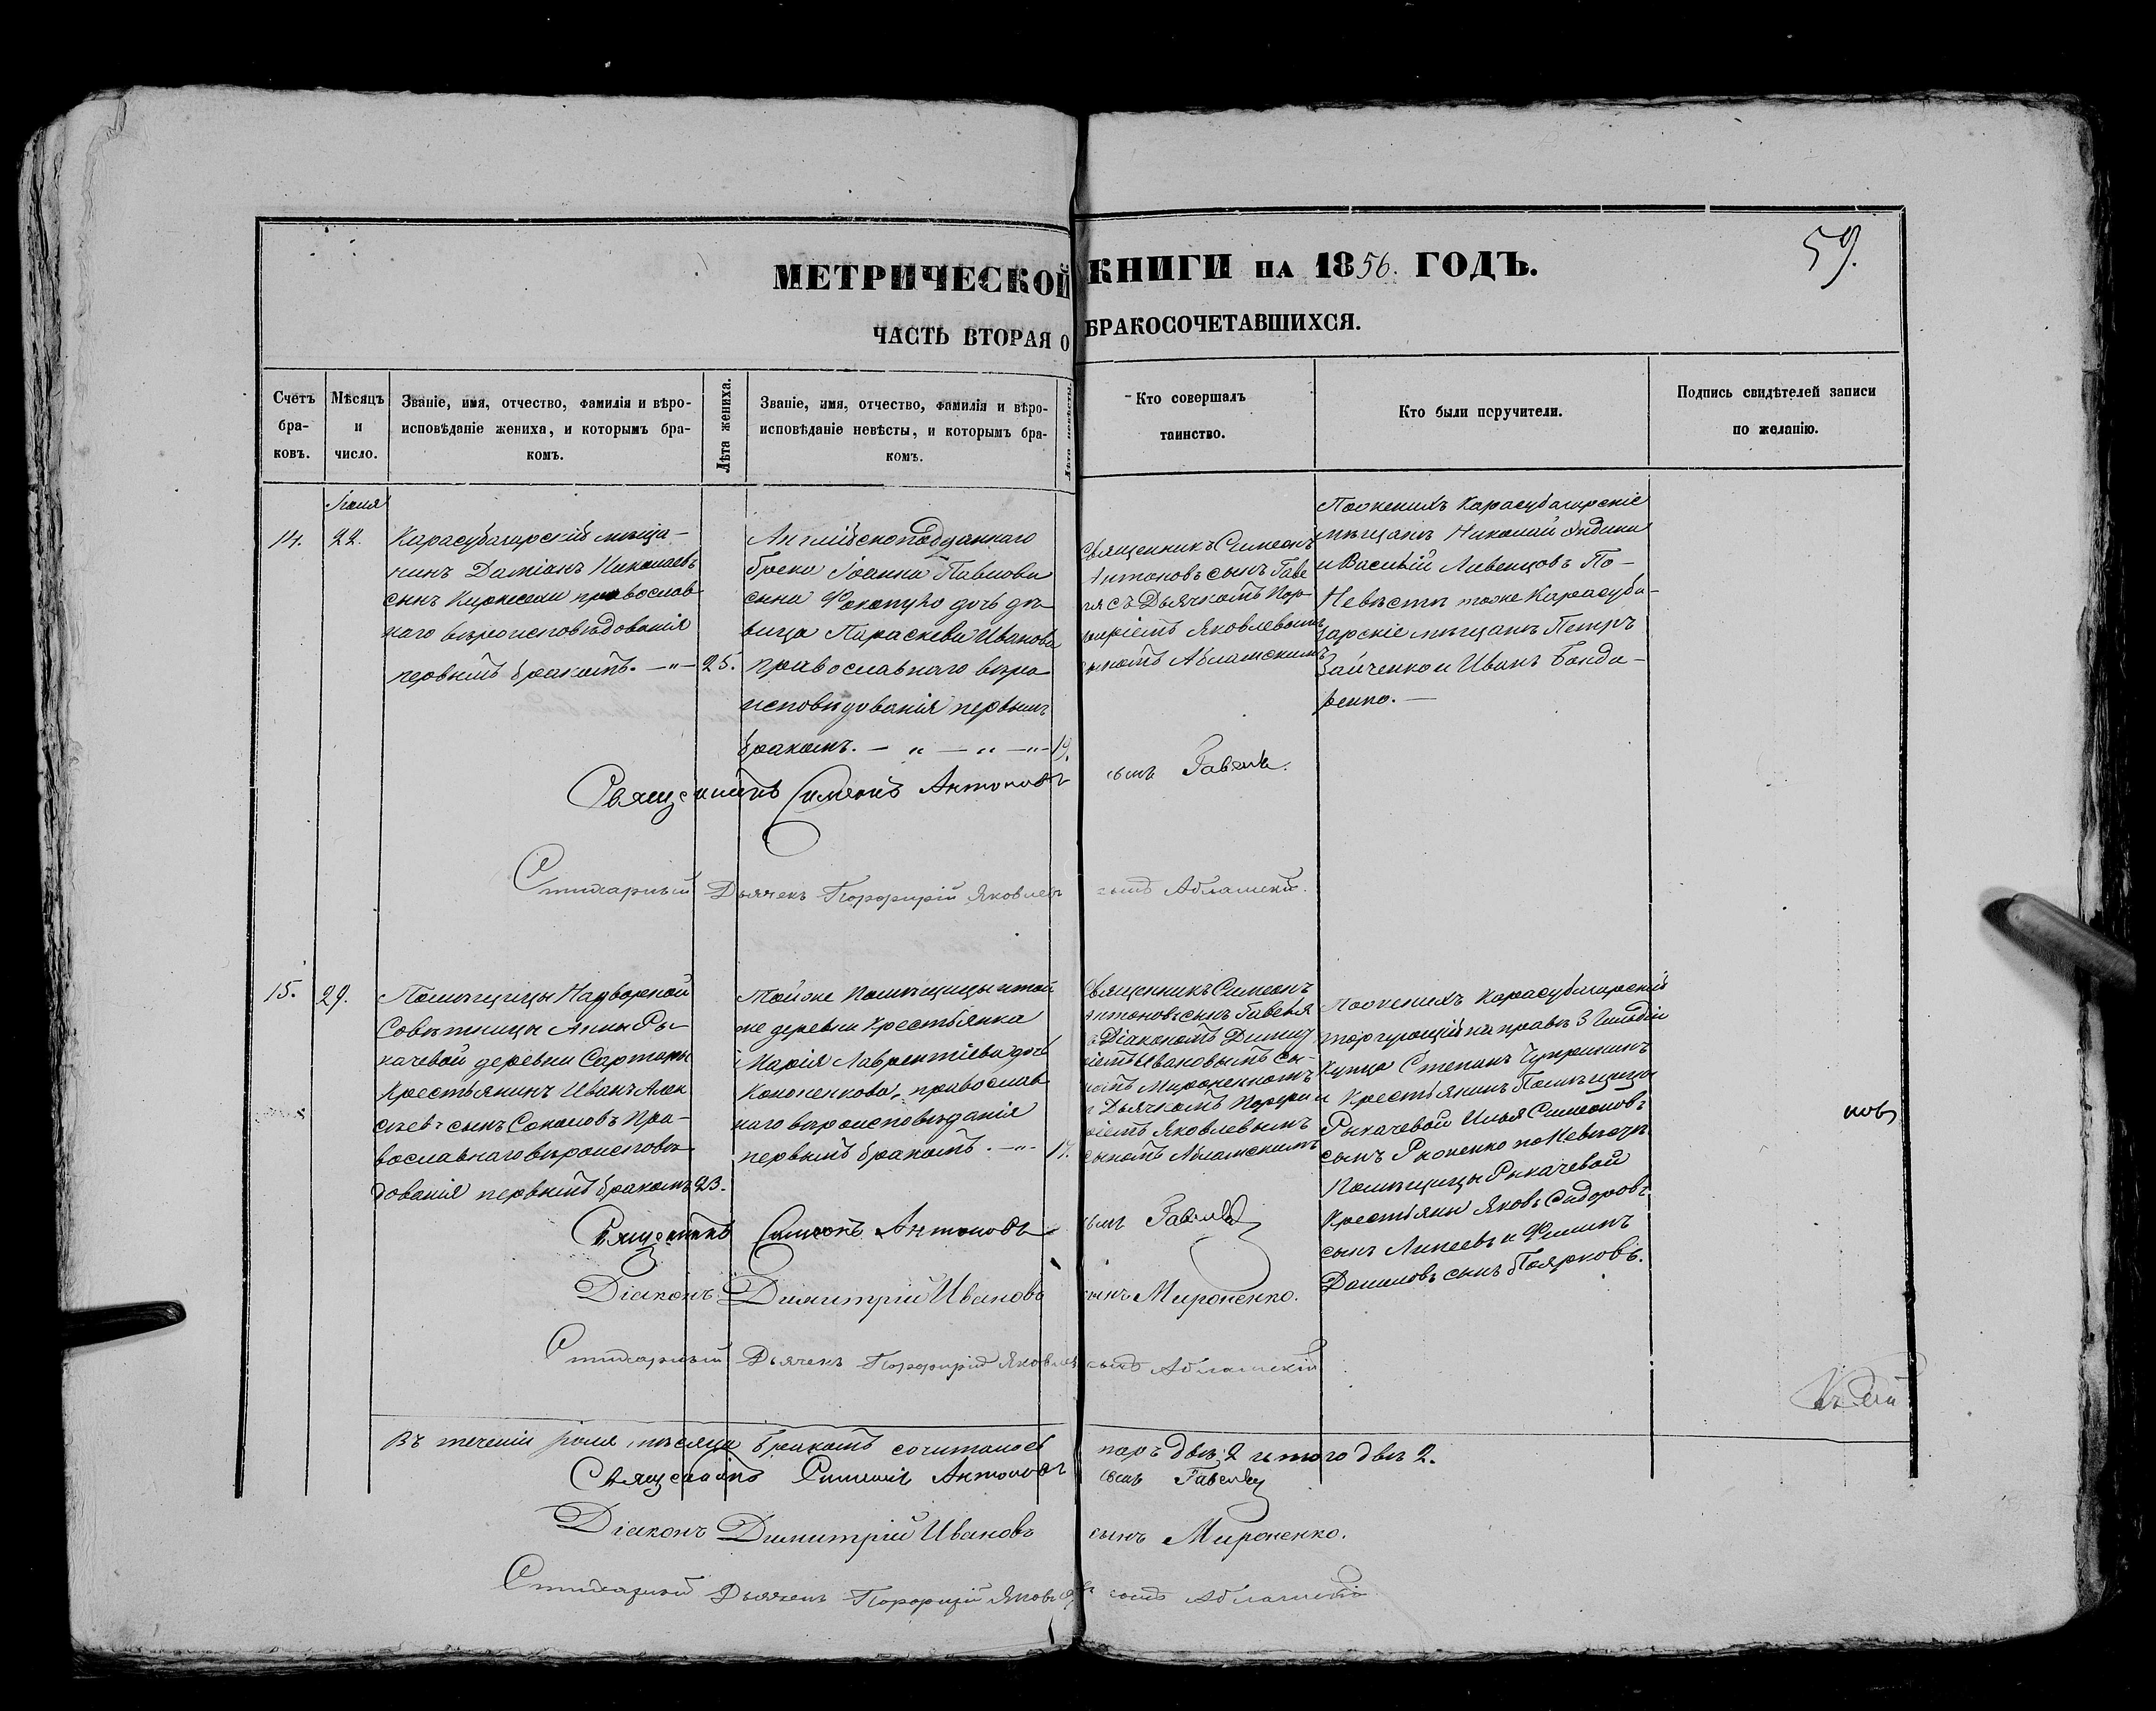 59.
МЕТРИЧЕСКОЙ КНИГИ НА 1856. ГОДЪ.
ЧАСТЬ ВТОРАЯ О БРАКОСОЧЕТАВШИХСЯ.
Счетъ бра-ковъ.
Мѣсяцъ и число.
Званіе, имя, отчество, фамилія и вѣро-
исповѣданіе жениха, и которымъ бра-
комъ.
Лѣта жениха.
Званіе, имя, отчество, фамилія и вѣро-
исповѣданіе невѣсты, и которымъ бра-
комъ.
Лѣта невѣсты.
Кто совершалъ
таинство.
Кто были поручители.
Подпись свидѣтелей записи
по желанію.
14.
22.
Карасубазарскій мѣща-
нинъ Даміанъ Николаевъ
сынъ православ
наго вѣроисповѣдованія
первымъ бракомъ. — „ — 25.
Англійскоподданнаго
Грека Іоанна Павлова
сына дочь дѣ
вица Параскева Иванова
православнаго вѣро
исповѣдованія первымъ
бракомъ. — „ — „ — „ — 19.
Священникъ Симеонъ
Антоновъ сынъ Гаве
ля съ Дьячкомъ Пор-
фиріемъ Яковлевымъ
сыномъ Абламскимъ
По женихѣ Карасубазарскіе
мѣщане Николай
и Василій Ливенцовъ По-
Невѣстѣ тоже Карасуба-
зарскіе мѣщане Петръ
Зайченко и Иванъ Бонда-
ренко. —
Священникъ Симеонъ Антоновъ сынъ Гавеля.
Стихарный Дьячекъ Порфирій Яковлевъ сынъ Абламскій.
15.
29.
Помѣщицы Надворной
Совѣтницы Анны Ры-
качевой деревни Сартаны
Крестьянинъ Иванъ Алек
сѣевъ сынъ Соколовъ Пра-
вославнаго вѣроисповѣ-
дованія первымъ бракомъ 23.
Тойже Помѣщицы итой
же деревни Крестьянка
Марія Лаврентіева дочь
Кононенкова, православ
наго вѣроисповѣданія
первымъ бракомъ. — „ — 17.
Священникъ Симеонъ
Антоновъ сынъ Гавеля
съ Діакономъ Димит
ріемъ Ивановымъ сы-
номъ Мироненкомъ
и Дьячкомъ Порфи
ріемъ Яковлевымъ
сыномъ Абламскимъ
По женихѣ Карасубазарскій
торгующій на правѣ 3 Гильдіи
Купца Степанъ
и Крестьянинъ Помѣщицы
Рыкачевой Илья Симеоновъ
сынъ по Невѣстѣ
Помѣщицы Рыкачевой
Крестьяне Яковъ Сидоровъ
сынъ и Филипъ
Даниловъ сынъ Поярковъ.
новъ
Священникъ Симеонъ Антоновъ сынъ Гавеля
Діаконъ Димитрій Ивановъ сынъ Мироненко.
Стихарный Дьячекъ Порфирій Яковлевъ сынъ Абламскій
Въ теченіи мѣсяца бракомъ сочиталось паръ двѣ 2 итого двѣ 2.
Священникъ Симеонъ Антоновъ сынъ Гавеля
Діаконъ Димитрій Ивановъ сынъ Мироненко.
Стихарный Дьячекъ Порфирій Яковлевъ сынъ Абламскій